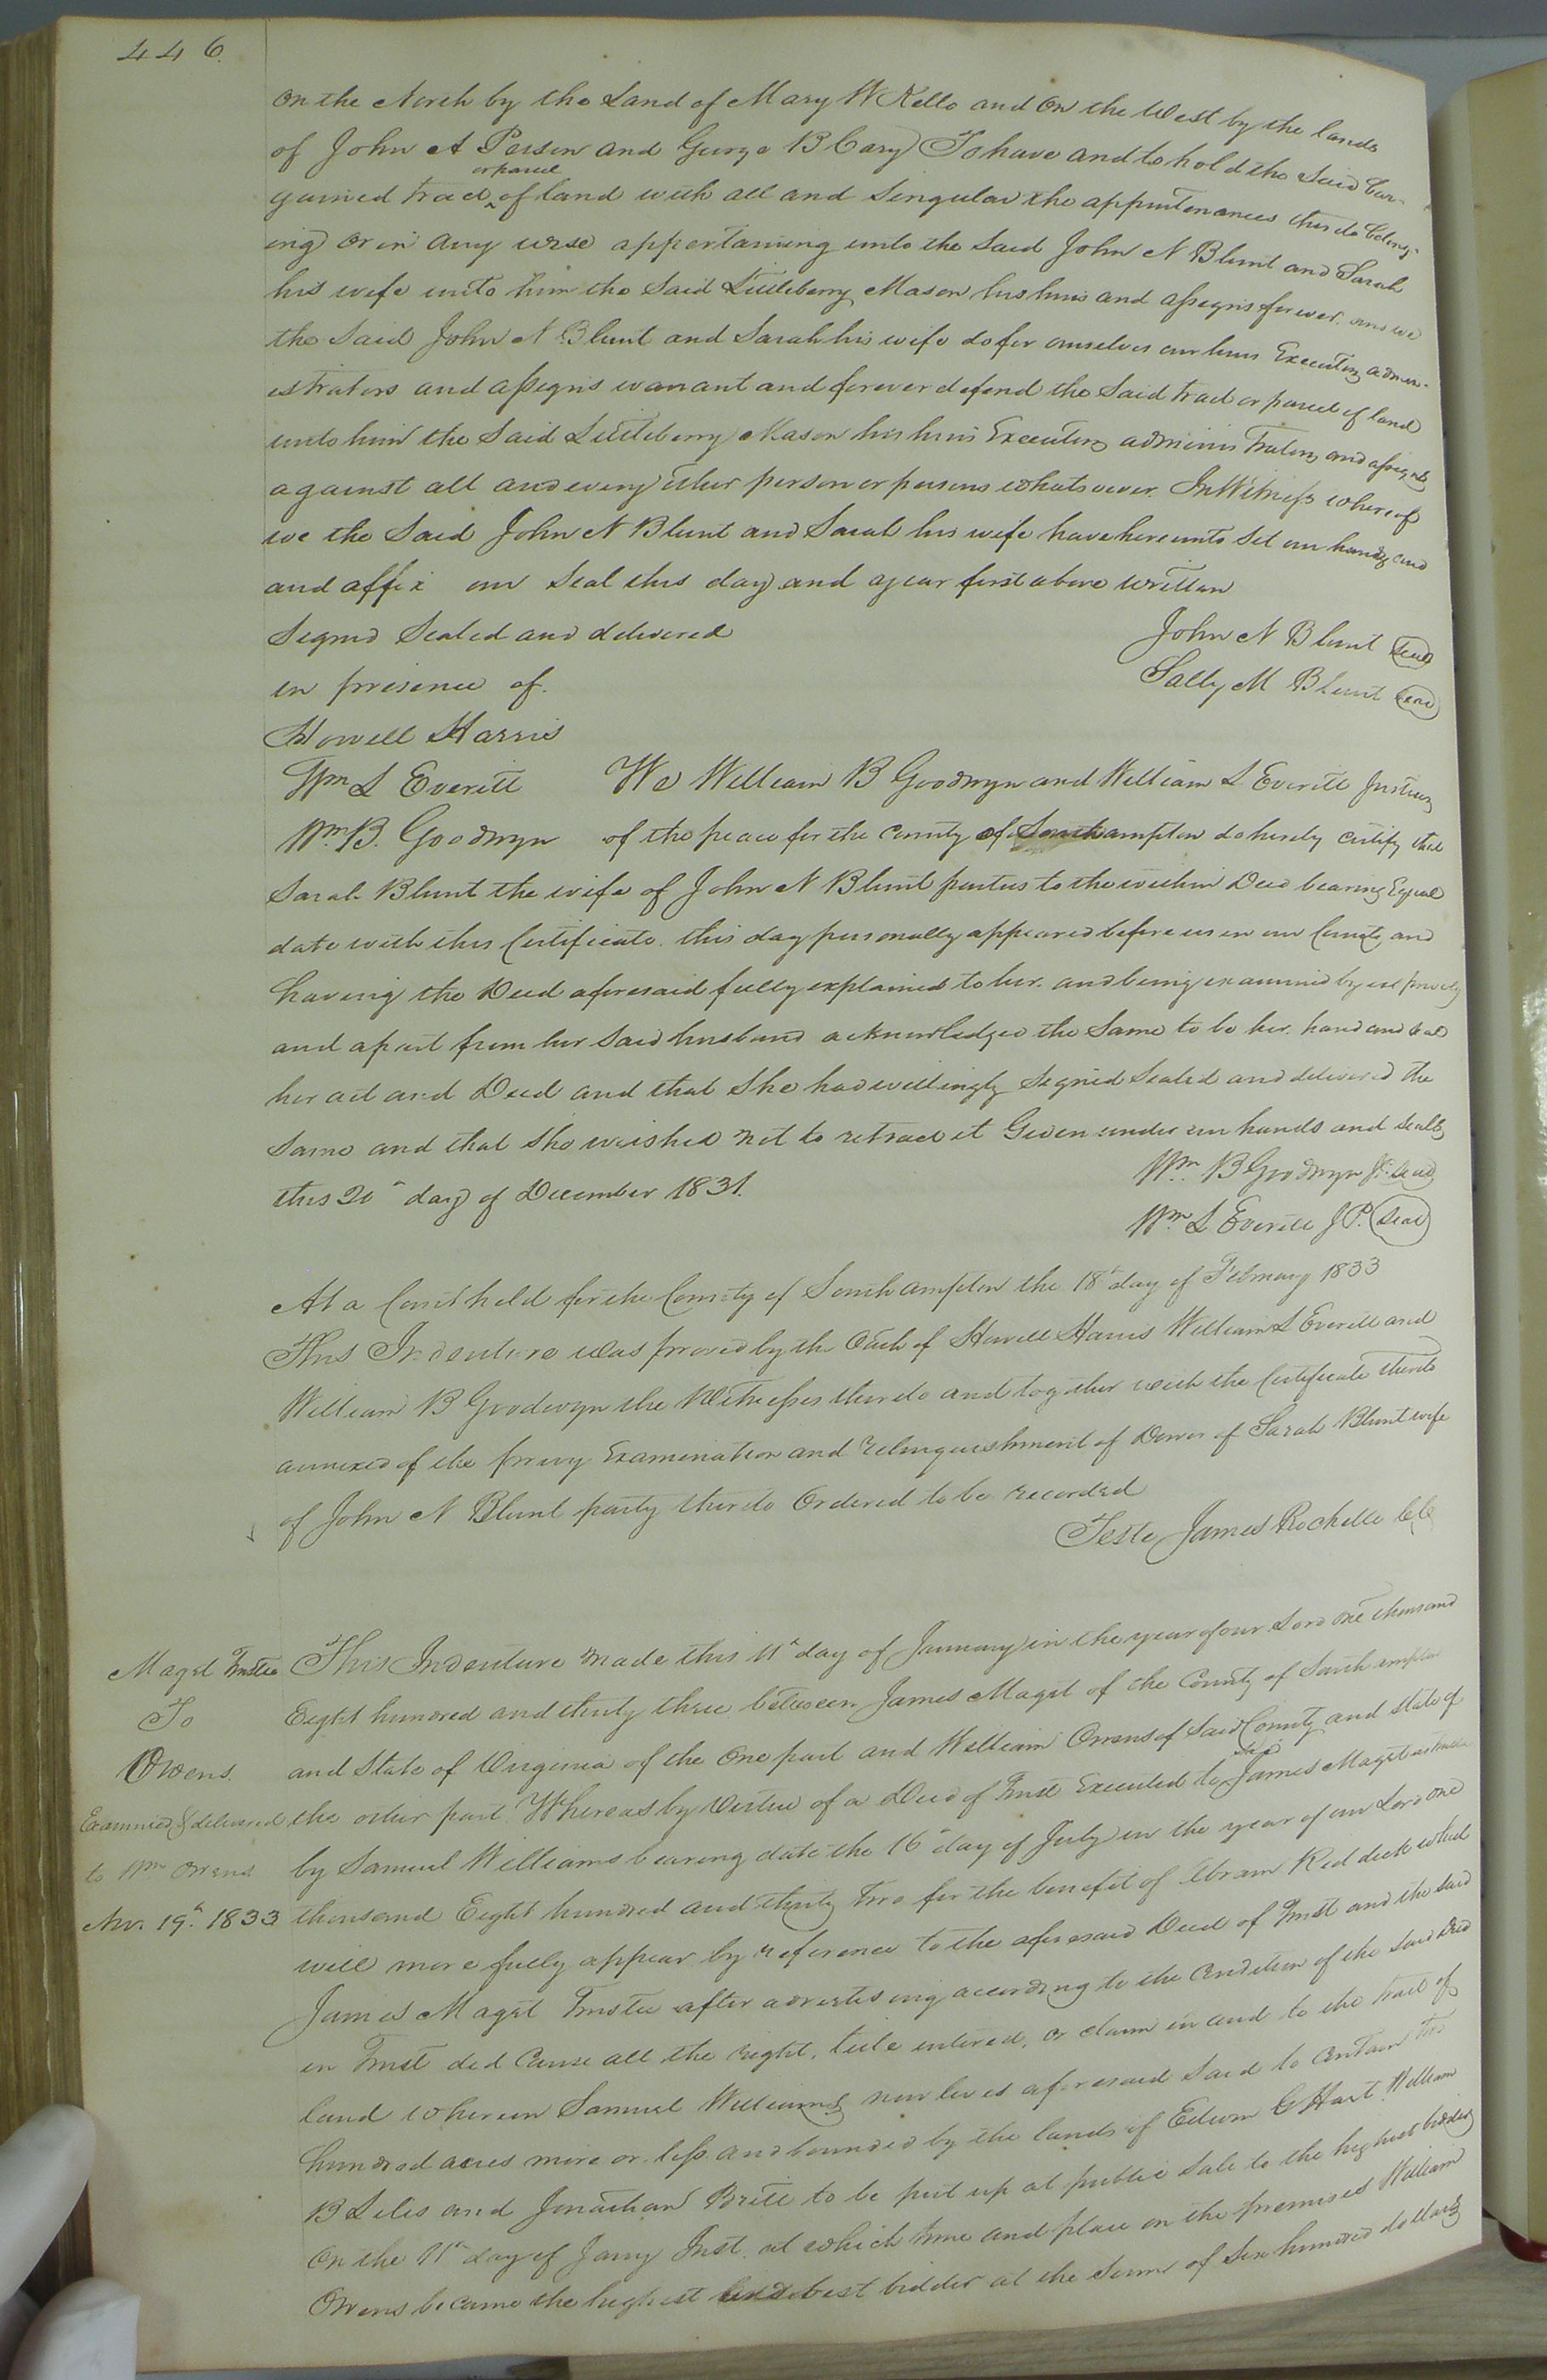 446.
on the North by the Land of Mary W Kello and on the West by the lands
of John A Person and George B Cary To have and to hold the Said bar-
gained tract or parcel of land with all and Singular the appurtenances thereto belong-
ing or in any wise appertaining unto the Said John N Blunt and Sarah
his wife unto him the Said Littleberry Mason his heirs and assigns forever. and we
the Said John N Blunt and Sarah his wife do for ourselves our heirs Executors admin-
istrators and assigns warrant and forever defend the Said tract or parcel of land
unto him the Said Littleberry Mason his heirs Executors administrators and assigns
against all and every other person or persons whatsoever. In Witness whereof
we the Said John N Blunt and Sarah his wife have hereunto Set our hands and
and affix our Seal this day and year first above written
Signed Sealed and delivered
John N Blunt Seal
in presence of.
Sally M Blunt Seal
Howell Harris
Wm L Everitt We William B Goodwyn and William L Everitt Justices
Wm. B. Goodwyn of the peace for the County of Southampton do hereby certify that
Sarah Blunt the wife of John N Blunt parties to the within Deed bearing Equal
date with this Certificate. this day personally appeared before us in our County and
having the Deed aforesaid fully explained to her. and being examined by us privily
and apart from her Said husband acknowledged the Same to be her hand and Seal
her act and Deed and that She had willingly Signed Sealed and delivered the
Same and that She wished not to retract it Given under our hands and Seals
this 20th day of December 1831.
Wm. B Goodwyn JP. Seal
Wm L Everitt JP. Seal
At a Court held for the County of Southampton the 18th day of February 1833
This Indenture was proved by the Oath of Howell Harris William L Everitt and
William B Goodwyn the Witnesses thereto and together with the Certificate thereto
annexed of the privy Examination and relinquishment of Dower of Sarah Blunt wife
of John N Blunt party thereto Ordered to be recorded
Teste James Rochelle CC
Maget Trustee
To
Owens.
Examined & delivered
to Wm Owens
Nov. 19th 1833
This Indenture made this 11th day of January in the year of our Lord one thousand
Eight hundred and thirty three between James Maget of the County of Southampton
and State of Virginia of the one part and William Owens of Said County and State of
the other part. Whereas by Virtue of a Deed of Trust Executed to Said James Maget as trustee
by Samuel Williams bearing date the 16th day of July in the year of our Lord one
thousand Eight hundred and thirty two for the benefit of Abram Reddick which
will more fully appear by reference to the aforesaid Deed of Trust and the Said
James Maget Trustee after advertising according to the condition of the Said Deed
in Trust did Cause all the right, title interest, or claim in and to the tract of
land wherein Samuel Williams now lives aforesaid Said to contain two
hundred acres more or less and bounded by the lands of Edwin C Hart William
B Liles and Jonathan Britt to be put up at public Sale to the highest bidder
on the 11th day of Jany Inst. at which time and place on the premises William
Owens became the highest best bidder at the Sum of Six hundred dollars